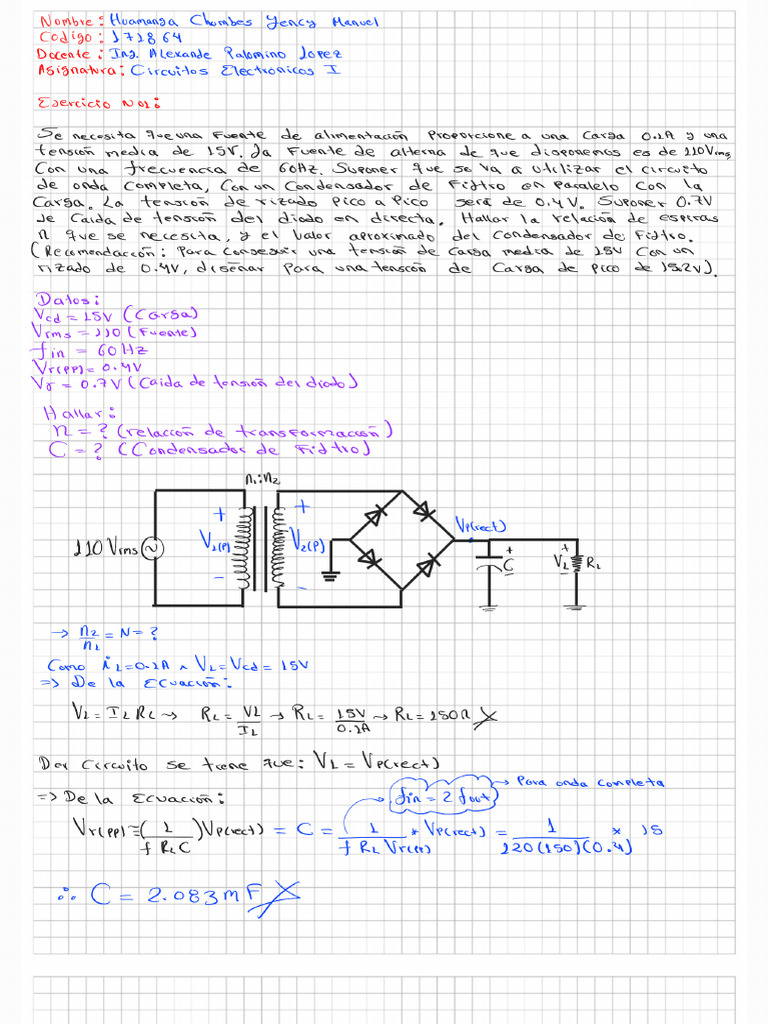 Nombre: Huamanga Chombes Yency Manuel
Codigo: 171864
Docente: Ing. Alexande Palomino Lopez
Asignatura: Circuitos Electronicos I
Ejercicio N01:
Se necesita que una Fuente de alimentación Proporcione a una Carga 0.1A y una
tensión media de 15V. La Fuente de alterna de que disponemos es de 110Vrms,
Con una frecuencia de 60Hz. Suponer que se va a utilizar el circuito
de onda completa, Con un Condensador de Filtro en Paralelo con la
Carga. La tensión de rizado Pico a Pico será de 0.4V. Suponer 0.7V
de Caida de tensión del diodo en directa. Hallar la relación de espiras
n que se necesita, y el Valor aproximado del Condensador de Filtro.
(Recomendacción: Para Conseguir una tensión de Carga media de 15V Con un
rizado de 0.4V, diseñar Para una tensión de Carga de Pico de 15.2V).
Datos:
Vcd = 15V (Carga)
Vrms = 110 (Fuente)
fin = 60Hz
Vr(PP) = 0.4V
Vγ = 0.7V (Caida de tensión del diodo)
Hallar:
n = ? (relacción de transformacción)
C = ? (Condensador de Filtro)
n1:n2
110 Vrms
+
V1(P)
-
+
V2(P)
-
Vp(rect)
+
C
+
VL
RL
→ n2/n1 = N = ?
Como iL=0.1A ∧ VL=Vcd=15V
⇒ De la Ecuación:
VL = IL RL → RL = VL/IL → RL = 15V/0.1A → RL = 150Ω
Del Circuito se tiene que: VL = Vp(rect)
→ Para onda completa
⇒ De la Ecuación:
fin = 2 fout
Vr(PP) = (1/f RL C) Vp(rect) = C = 1/f RL Vr(PP) * Vp(rect) = 1/120(150)(0.4) * 15
∴ C = 2.083mF